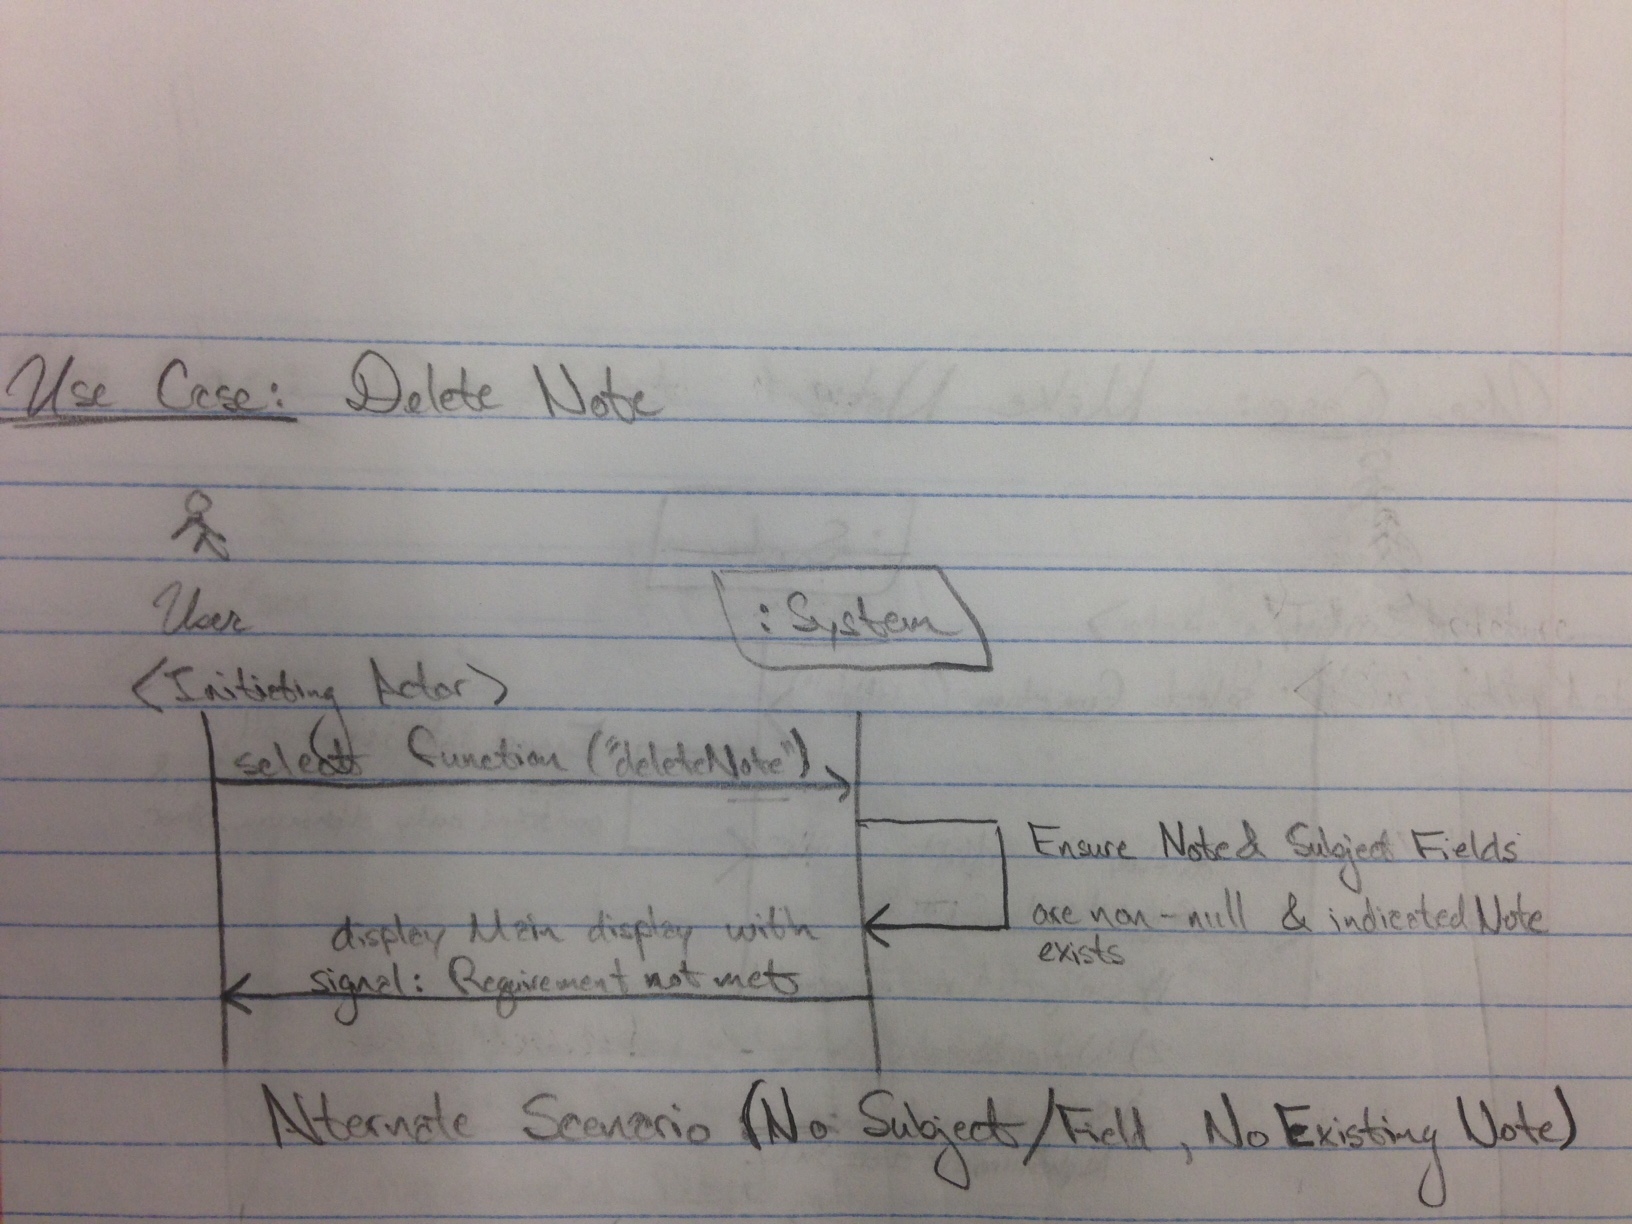 Use Case: Delete Note
User
: System
<Initiating Actor>
select function ("deleteNote")
Ensure Note & Subject Fields
are non-null & indicated Note
exists
display Main display with
signal: Requirement not met
Alternate Scenario (No Subject/Field, No Existing Note)